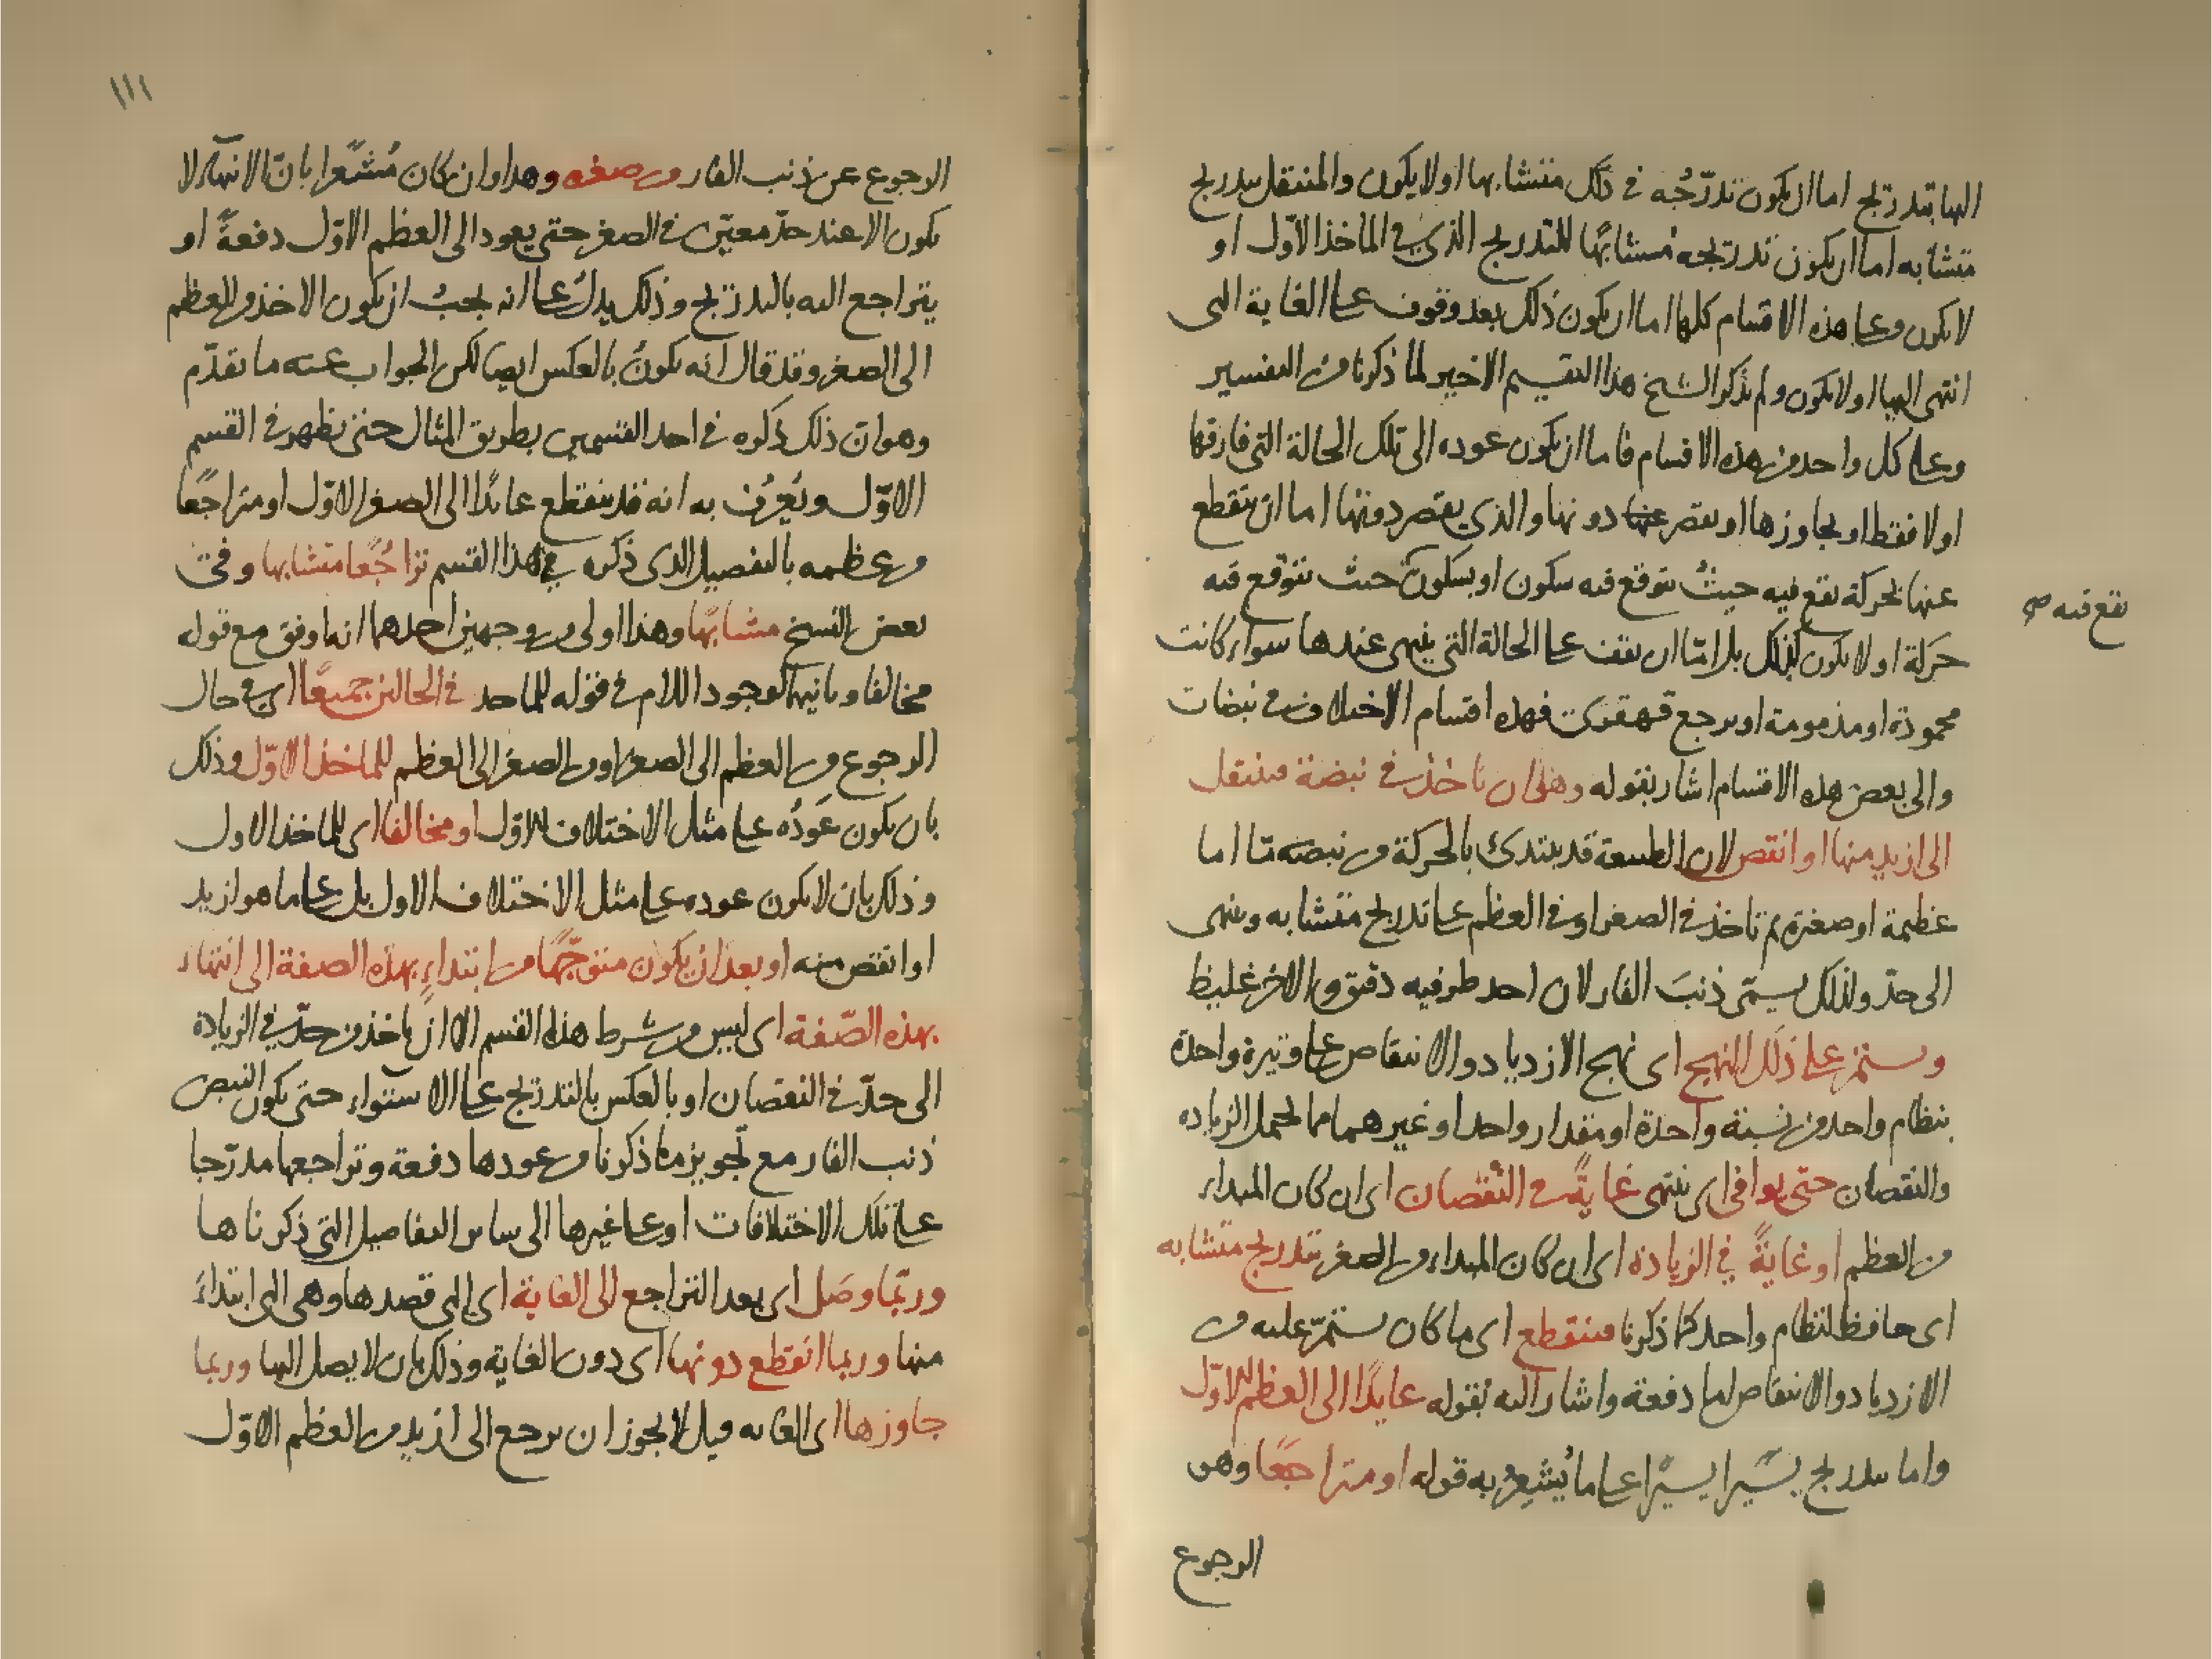 اليها بتدريج اما ان يكون تدرّجُه في ذلك متشابها او لا يكون والمنتقل بتدريج
متشابه اما ان يكون تدريجه مُتشابهًا للتدريج الذي في الماخذ الاوّل او
لا يكون وعلى هذه الاقسام كلها اما ان يكون ذلك بعد وقوف على الغاية التى
انتهى اليها او لا يكون ولم يذكر الشيخ هذا التقسيم الاخير لما ذكرنا من التفسير
وعلى كل واحد من هذه الاقسام فاما ان يكون عوده الى تلك الحالة التي فارقها
اولا فقط او يجاوزها او يقصر عنها دونها والذي يقصر دونها اما ان ينقطع
عنها بحركة تقع فيه حيثُ يتوقع فيه سكون او بسكون حيث يتوقع فيه
يقع فيه صح
حركة او لا يكون كذلك بل امّا ان يقف على الحالة التي ينتهى عندها سواء كانت
محمودة او مذمومة او يرجع قهقرى فهذه اقسام الاختلاف في نبضات
والى بعض هذه الاقسام اشار بقوله وهل ان ياخذ في نبضة فينتقل
الى ازيد منها او انقص لان الطبيعة قد يبتدئ بالحركة من نبضة ما اما
عظيمة او صغيرة ثم تاخذ في الصغر او في العظم على تدريج متشابه وينتهى
الى حدّ ولذلك يسمّى ذنبَ الفار لان احد طرفيه دقيق والاخر غليظ
ويستمر على ذلك النهج اى نهج الازدياد والانتقاص على وتيرة واحدة
بنظام واحد من نسبة واحدة او مقدار واحد او غيرهما مما يحتمل الزياده
والنقصان حتى يوافى اى ينتهى غايةً في النقصان اى ان كان المبداء
من العظم او غايةً في الزيادة اى ان كان المبداء من الصغر بتدريج متشابه
اى حافظ لنظام واحد كما ذكرنا فينقطع اى ما كان يستمرّ عليه من
الازدياد والانتقاص اما دفعة واشار اليه بقوله عايدًا الى العظم الاوّل
واما بتدريج يسيرًا يسيرًا على ما يُشعِرُ به قوله او متراجعًا وهو
الرجوع
١١١
الرجوع عن ذنب الفار من صغه وهذا وان كان مُشعرًا بانّ الانتهاء لا
يكون الا عند حدّ معيّن في الصغر حتى يعود الى العظم الاوّل دفعةً او
يتراجع اليه بالتدريج وذلك يدلُ على انه يجبُ ان يكون الاخذ من العظم
الى الصغر وقد قال انه يكونُ بالعكس ايضا لكن الجواب عنه ما تقدّم
وهو ان ذلك ذكره في احد القسمين بطريق المثال حتى يظهر في القسم
الاوّل ويُعرَف به انه قد ينقطع عايدًا الى الصغر الاوّل او متراجعًا
من عظمه بالتفصيل الذى ذكره في هذا القسم تراجُعًا متشابها وفى
بعض النسخ مشابهًا وهذا اولى من وجهين احدهما انه اوفق مع قوله
مخالفا وثانيهما لوجود اللام في قوله للماخذ في الحالين جميعًا اى في حال
الرجوع من العظم الى الصغر او من الصغر الى العظم للماخذ الاوّل وذلك
بان يكون عَودُه على مثل الاختلاف الاوّل او مخالفا اى للماخذ الاول
وذلك بان لا يكون عوده على مثل الاختلاف الاول بل على ما هو ازيد
او انقص منه او بعد ان يكون متوجّهًا من ابتداءٍ بهذه الصفة الى انتهاء
بهذه الصّفة اى ليس من شرط هذه القسم الا ان ياخذ من حدّ في الزيادة
الى حدّ في النقصان او بالعكس بالتدريج على الاستواء حتى يكون النبض
ذنب الفار مع تجويز ما ذكرنا من عودها دفعة وتراجعها مدرّجا
على تلك الاختلافات او على غيرها الى ساير التفاصيل التي ذكرناها
وربّما وصَل اى بعد التراجع الى الغاية اى التى قصدها وهى التى ابتداءَ
منها وربما انقطع دونها اى دون الغاية وذلك بان لا يصل اليها وربما
جاوزها اى الغايه قيل لا يجوز ان يرجع الى ازيد من العظم الاوّل